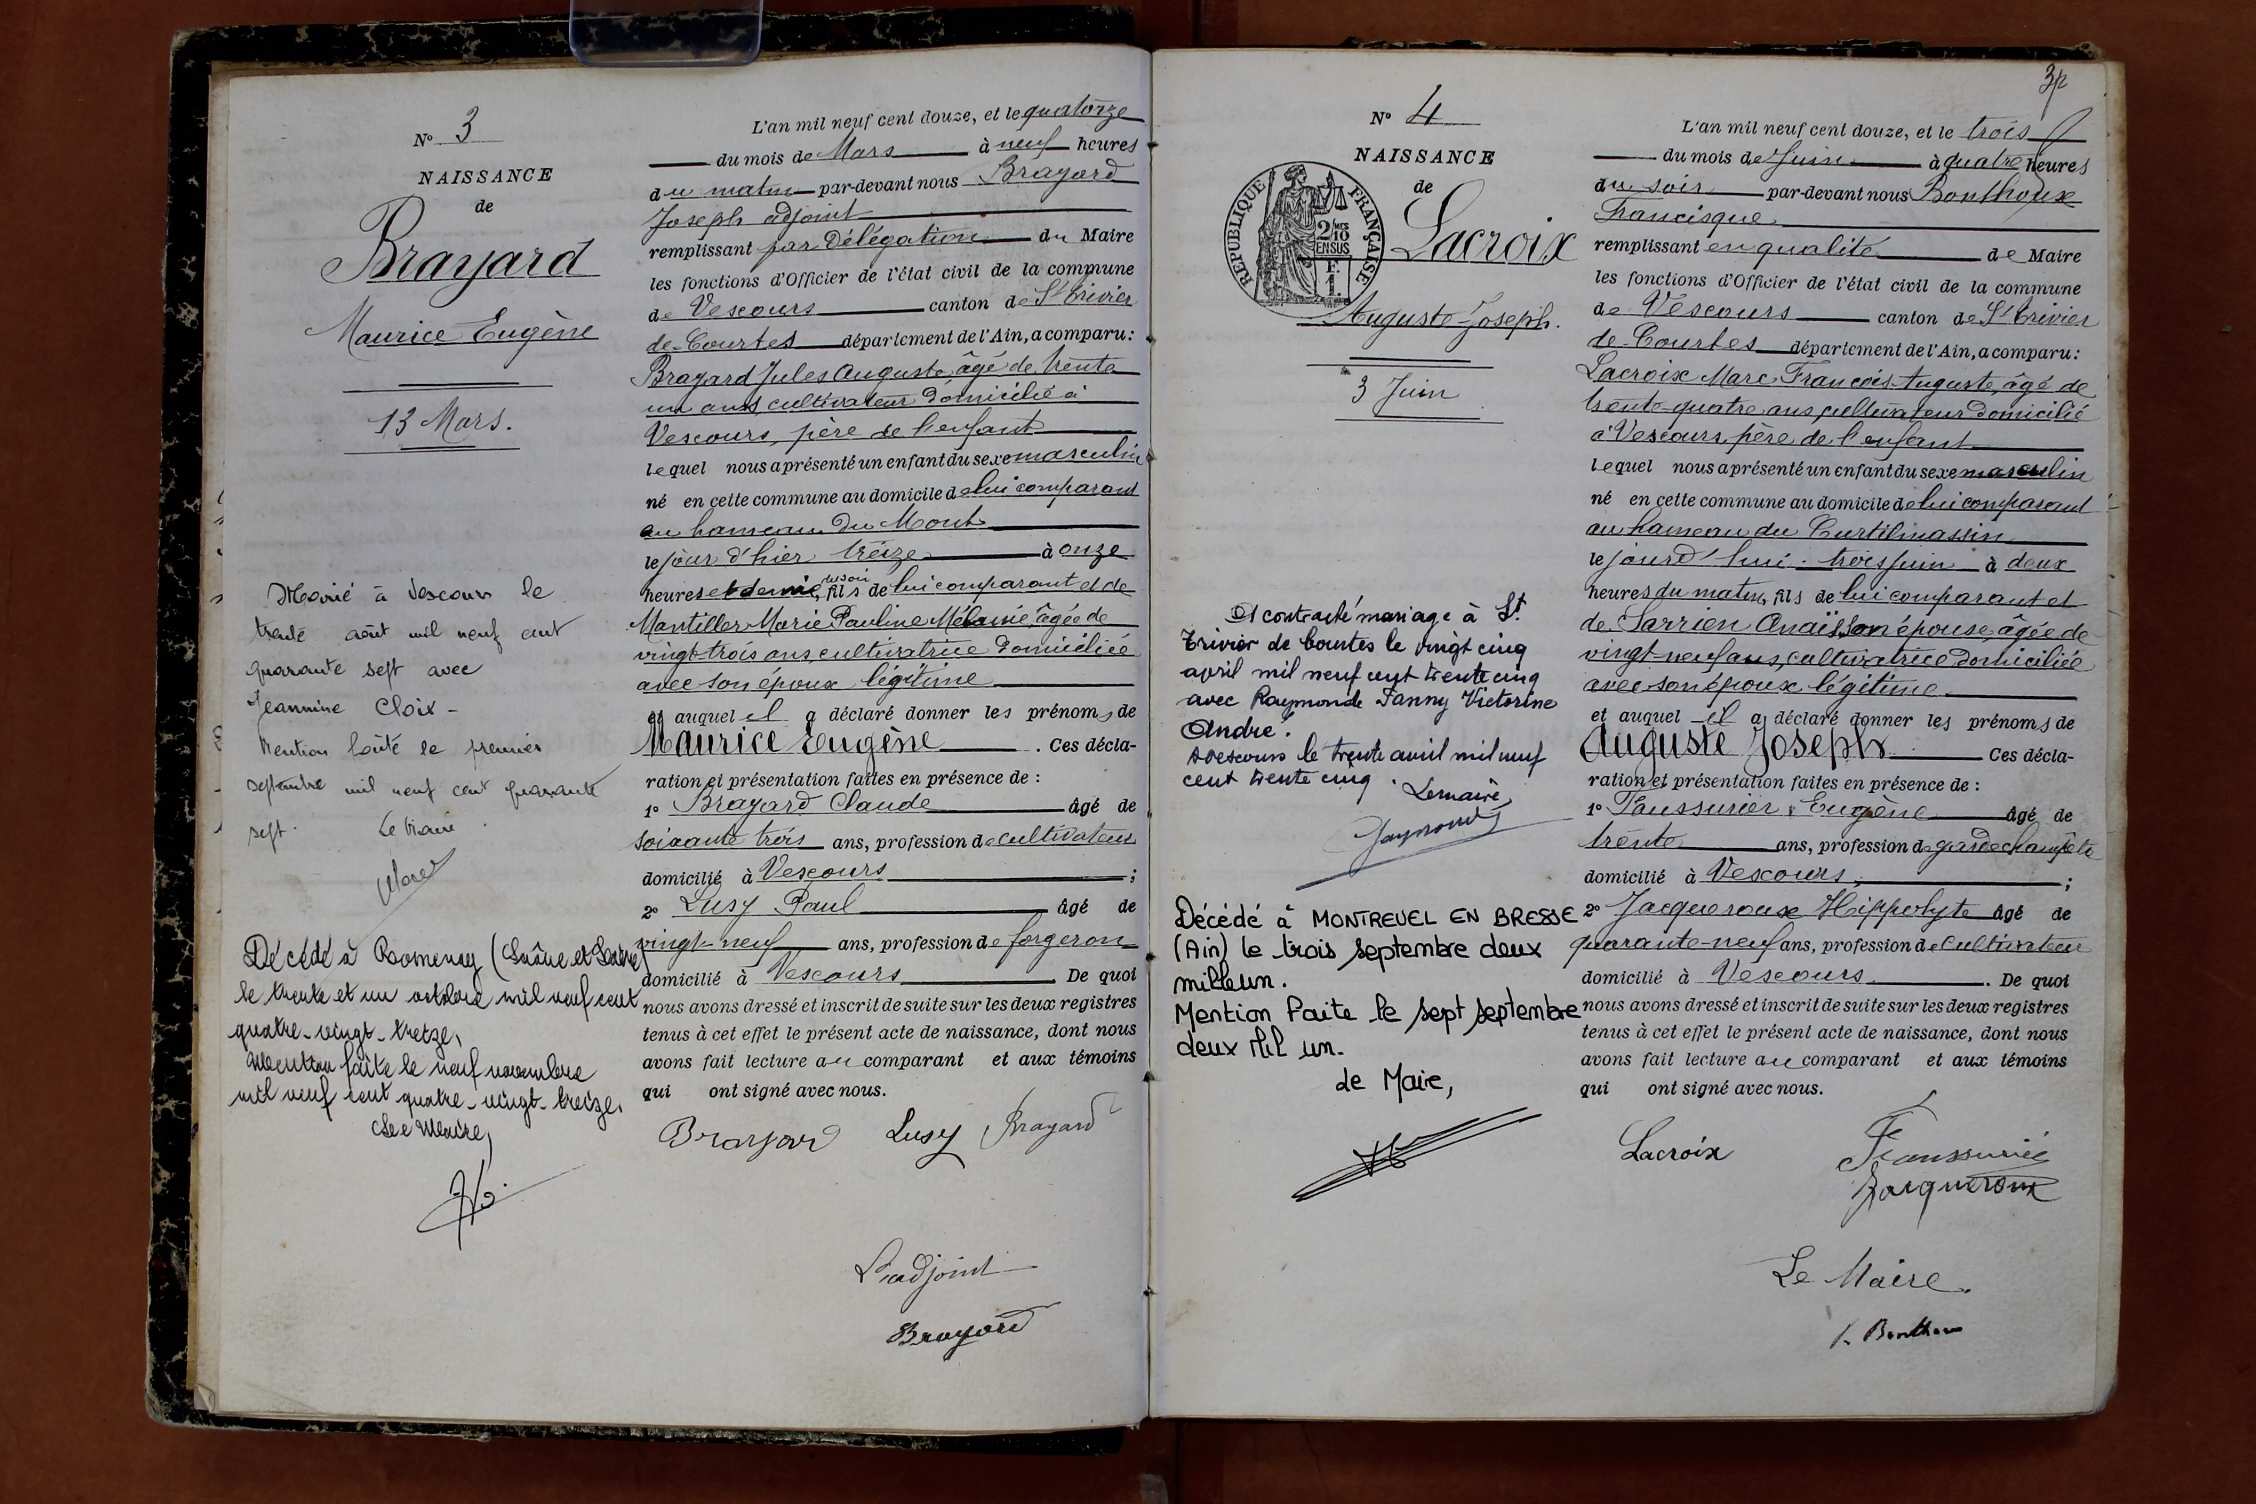 N° 3
NAISSANCE
de
Brayard
Maurice Eugène
13 Mars.
Marié à Vescours le
trente août mil neuf cent
quarante sept avec
Jeannine Cloix -
Mention faite le premier
septembre mil neuf cent quarante
sept. Le Maire
Décédé à Romenay (Saône et Loire)
le trente et un octobre mil neuf cent
quatre-vingt-treize,
Mention faite le neuf novembre
mil neuf cent quatre-vingt-treize,
Le Maire,
L'an mil neuf cent douze, et le quatorze
du mois de Mars à neuf heures
du matin par-devant nous Brayard
Joseph adjoint
remplissant par Délégation du Maire
les fonctions d'Officier de l'état civil de la commune
de Vescours canton de St Trivier
de-Courtes département de l'Ain, a comparu:
Brayard Jules Auguste, âgé de trente
un ans, cultivateur domicilié à
Vescours, père de l'enfant
lequel nous a présenté un enfant du sexe masculin
né en cette commune au domicile de lui comparant
au hameau du Mont
le jour d'hier treize à onze
heures et demie, du soir fils de lui comparant et de
Mantiller Marie Pauline Mélanie, âgée de
vingt-trois ans, cultivatrice domiciliée
avec son époux légitime
et auquel il a déclaré donner les prénoms de
Maurice Eugène. Ces décla-
ration et présentation faites en présence de :
1° Brayard Claude âgé de
soixante trois ans, profession de cultivateur
domicilié à Vescours ;
2° Lusy Paul âgé de
vingt-neuf ans, profession de forgeron
domicilié à Vescours De quoi
nous avons dressé et inscrit de suite sur les deux registres
tenus à cet effet le présent acte de naissance, dont nous
avons fait lecture au comparant et aux témoins
qui ont signé avec nous.
Brayard Lusy Brayard
L'adjoint
Brayard
N° 4
NAISSANCE
de
Lacroix
Auguste Joseph.
3 Juin
RÉPUBLIQUE FRANÇAISE
2/10MES
EN SUS
F.
1.
A contracté mariage à St
Trivier de Courtes le vingt cinq
avril mil neuf cent trente cinq
avec Raymonde Fanny Victorine
André.
A Vescours le trente avril mil neuf
cent trente cinq. Le maire,
Décédé à MONTREVEL EN BRESSE
(Ain) le trois septembre deux
mille un.
Mention faite le sept septembre
deux mil un.
Le Maire,
3
L'an mil neuf cent douze, et le trois
du mois de Juin à quatre heures
du soir par-devant nous Bonthoux
Francisque
remplissant en qualité de Maire
les fonctions d'Officier de l'état civil de la commune
de Vescours canton de St Trivier
de-Courtes département de l'Ain, a comparu:
Lacroix Marc François Auguste, âgé de
trente-quatre ans, cultivateur domicilié
à Vescours, père de l'enfant
lequel nous a présenté un enfant du sexe masculin
né en cette commune au domicile de lui comparant
au hameau du Curtilmassin
le jourd'hui trois juin à deux
heures du matin, fils de lui comparant et
de Sarrien Anaïs son épouse, âgée de
vingt-neuf ans, cultivatrice domiciliée
avec son époux légitime
et auquel il a déclaré donner les prénoms de
Auguste Joseph Ces décla-
ration et présentation faites en présence de :
1° Faussurier Eugène âgé de
trente ans, profession de garde champêtre
domicilié à Vescours, ;
2° Jacqueroux Hippolyte âgé de
quarante-neuf ans, profession de cultivateur
domicilié à Vescours. De quoi
nous avons dressé et inscrit de suite sur les deux registres
tenus à cet effet le présent acte de naissance, dont nous
avons fait lecture au comparant et aux témoins
qui ont signé avec nous.
Lacroix Faussurier
Jacqueroux
Le Maire.
F. Bonthoux